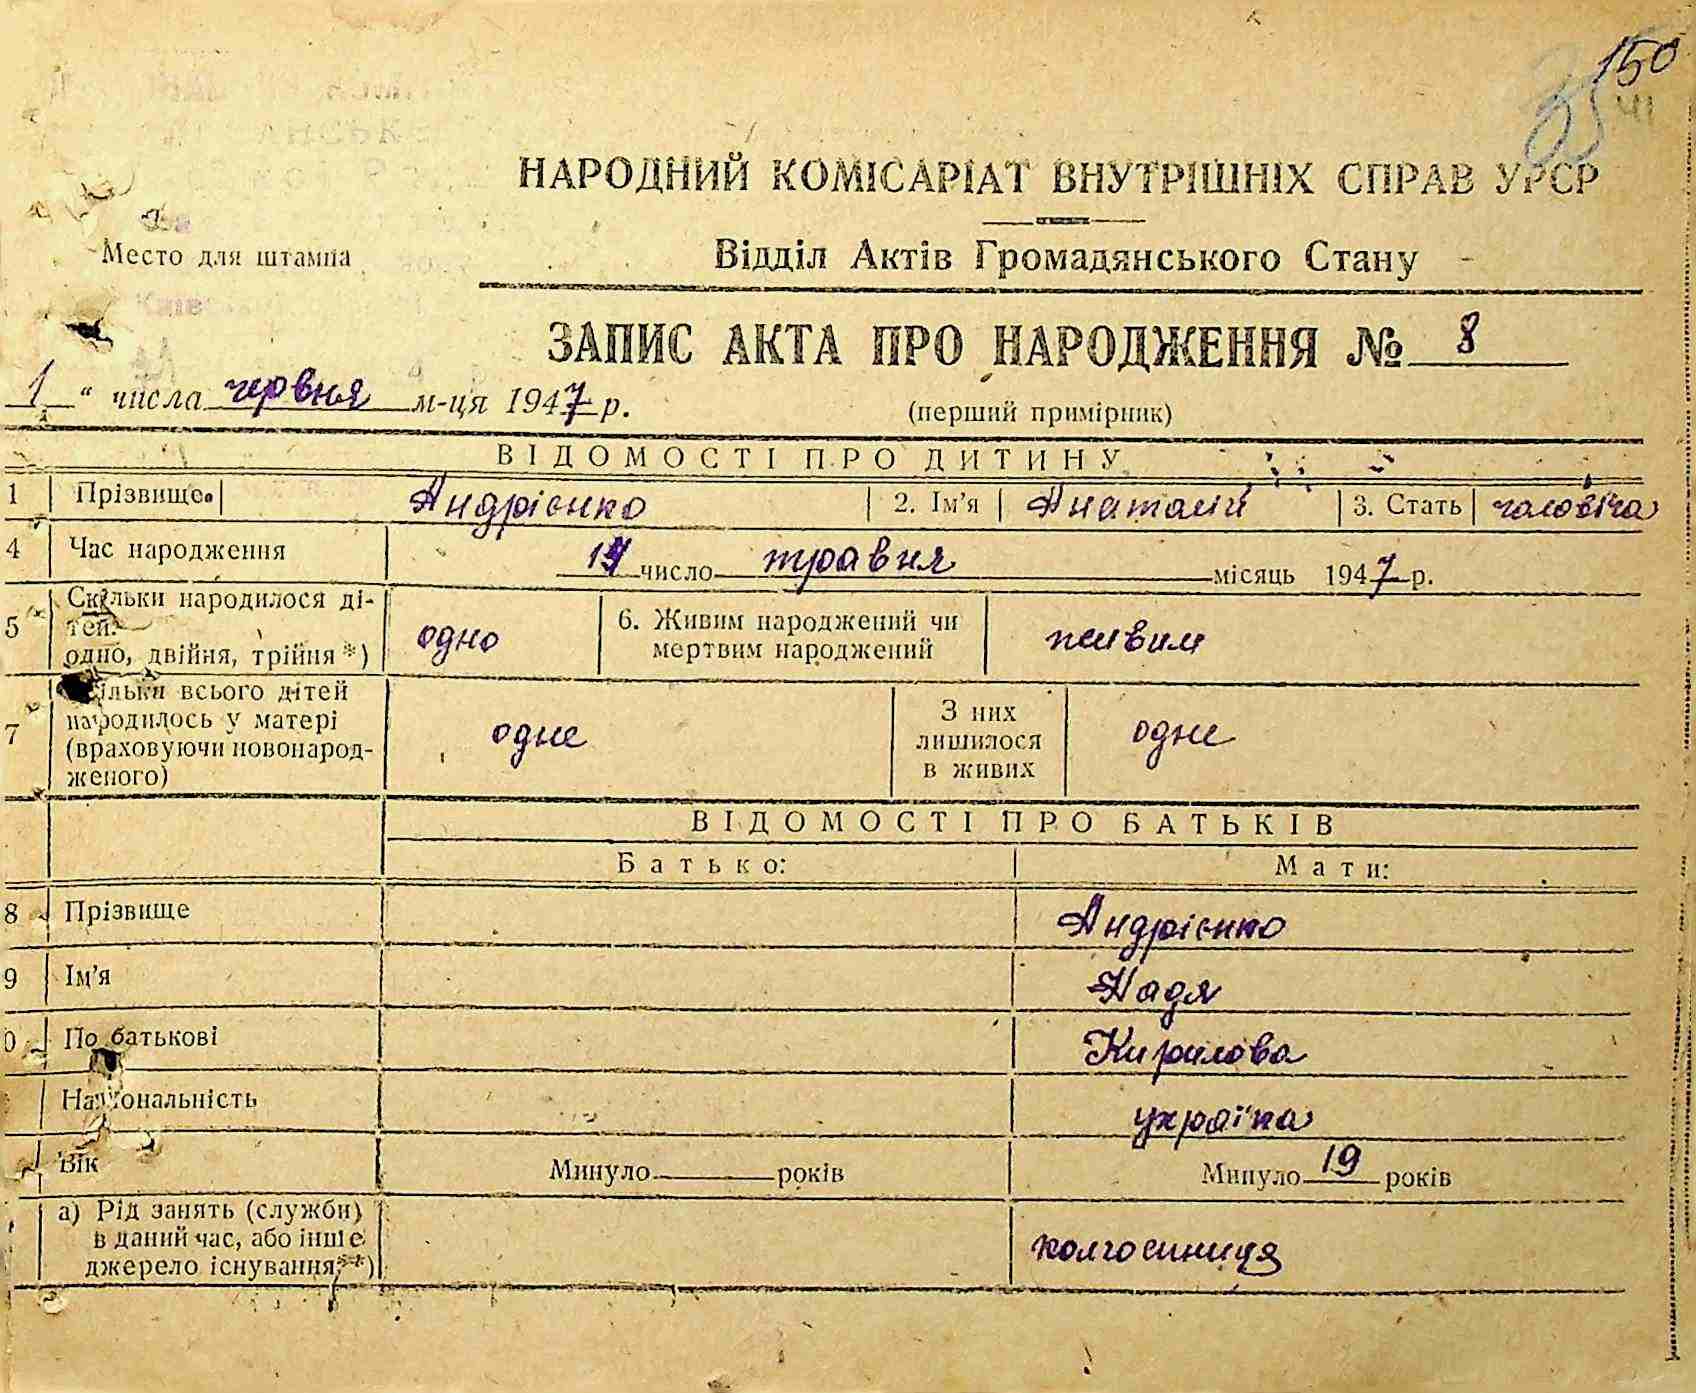 150
41
НАРОДНИЙ КОМІСАРІАТ ВНУТРІШНІХ СПРАВ УРСР
Место для штампа
Відділ Актів Громадянського Стану
ЗАПИС АКТА ПРО НАРОДЖЕННЯ № 8
1 " числа червня м-ця 1947 р.
(перший примірник)
ВІДОМОСТІ ПРО ДИТИНУ
1 Прізвище Андрієнко 2. Ім'я Анатолій 3. Стать чоловіча
4 Час народження число травня місяць 1947 р.
5 Скільки народилося ді-
тей:
одно, двійня, трійня*) одно 6. Живим народжений чи
мертвим народжений живим
7 Скільки всього дітей
народилось у матері
(враховуючи новонарод-
женого) одне З них
лишилося
в живих одне
ВІДОМОСТІ ПРО БАТЬКІВ
Батько: Мати:
8 Прізвище Андрієнко
9 Ім'я Надя
0 По батькові Кирилова
Національність україна
Вік Минуло років Минуло 19 років
а) Рід занять (служби)
в даний час, або інше
джерело існування**) колгосниця